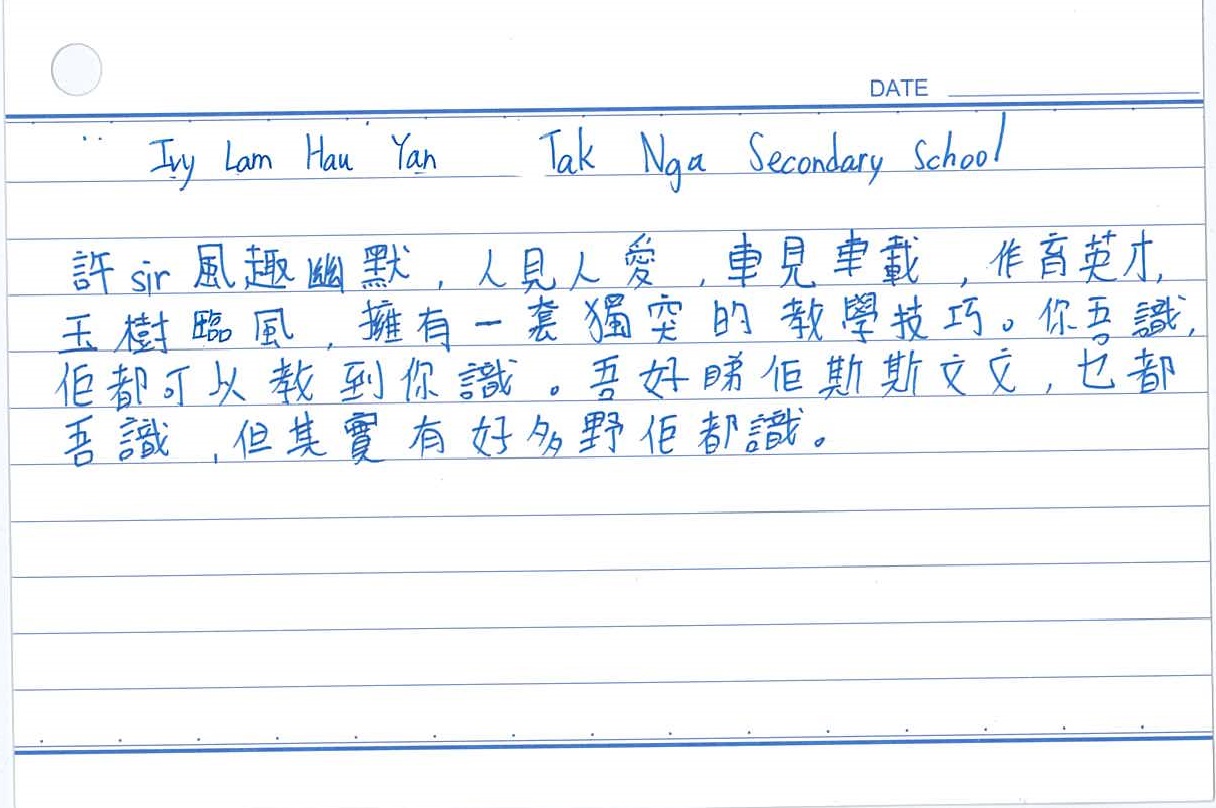 DATE
Ivy Lam Hau Yan Tak Nga Secondary School
許sir風趣幽默，人見人愛，車見車載，作育英才，
玉樹臨風，擁有一套獨突的教學技巧。你吾識，
佢都可以教到你識。吾好睇佢斯斯文文，乜都
吾識，但其實有好多野佢都識。